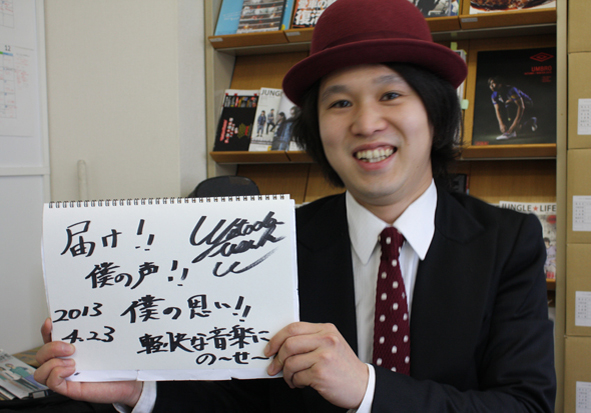 届け!!
僕の声!!
2013 僕の思い!!
4.23 軽快な音楽に
の〜せ〜
JUNGLE
JUNGLE★LIFE